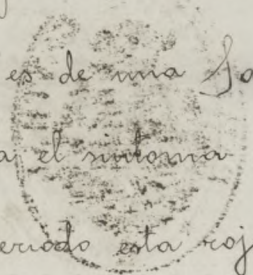 es de una
a el sintoma
periodo esta roj